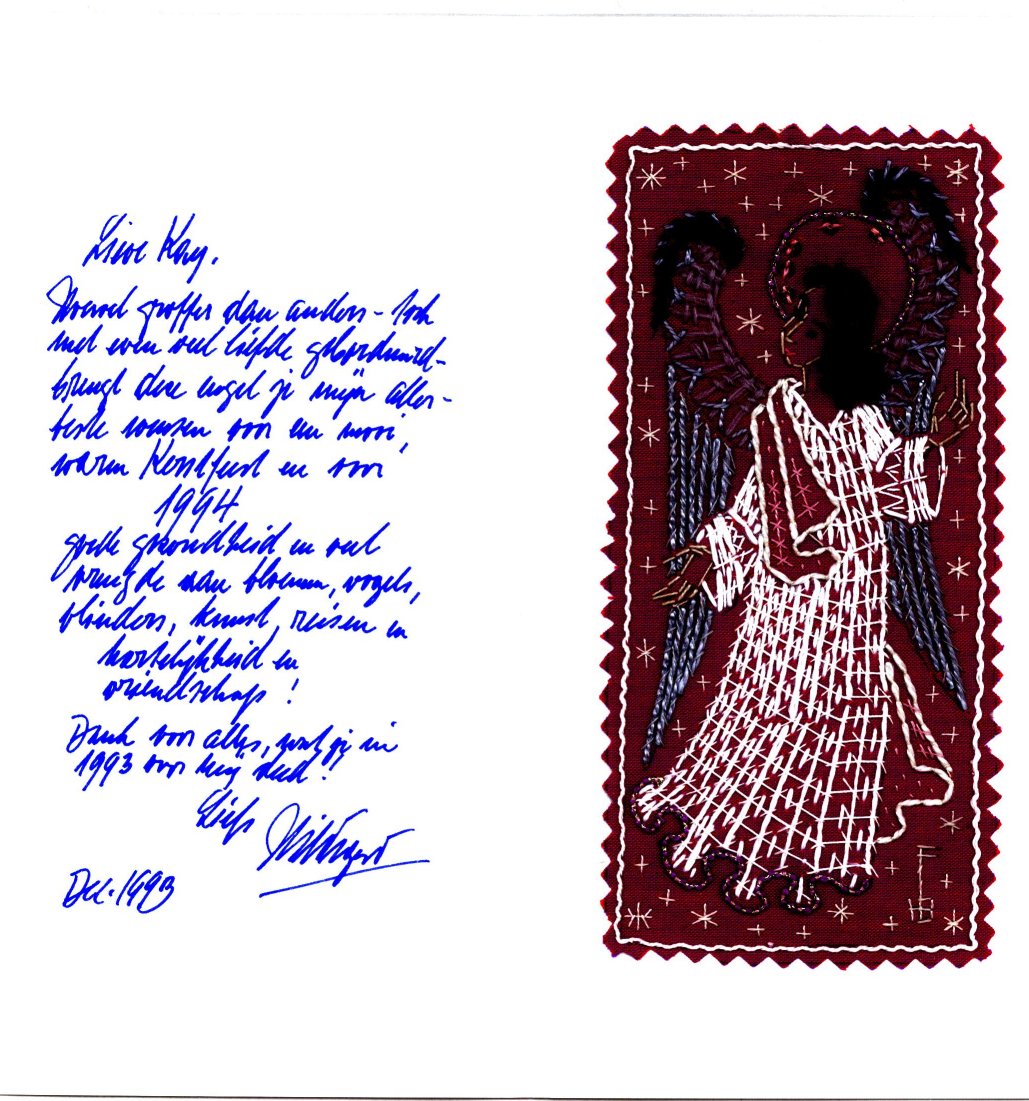 Lieve Kay,
Hoewel groffer dan anders - toch
met even veel liefde geborduurd -
brengt deze engel je mijn aller-
beste wensen voor een mooi,
warm Kerstfeest en voor
1994
goede gezondheid en veel
vreugde aan bloemen, vogels,
vlinders, kunst, reizen en
hartelijkheid en
vriendschap!
Dank voor alles, wat jij in
1993 voor mij deed!
Liefs
Dec. 1993